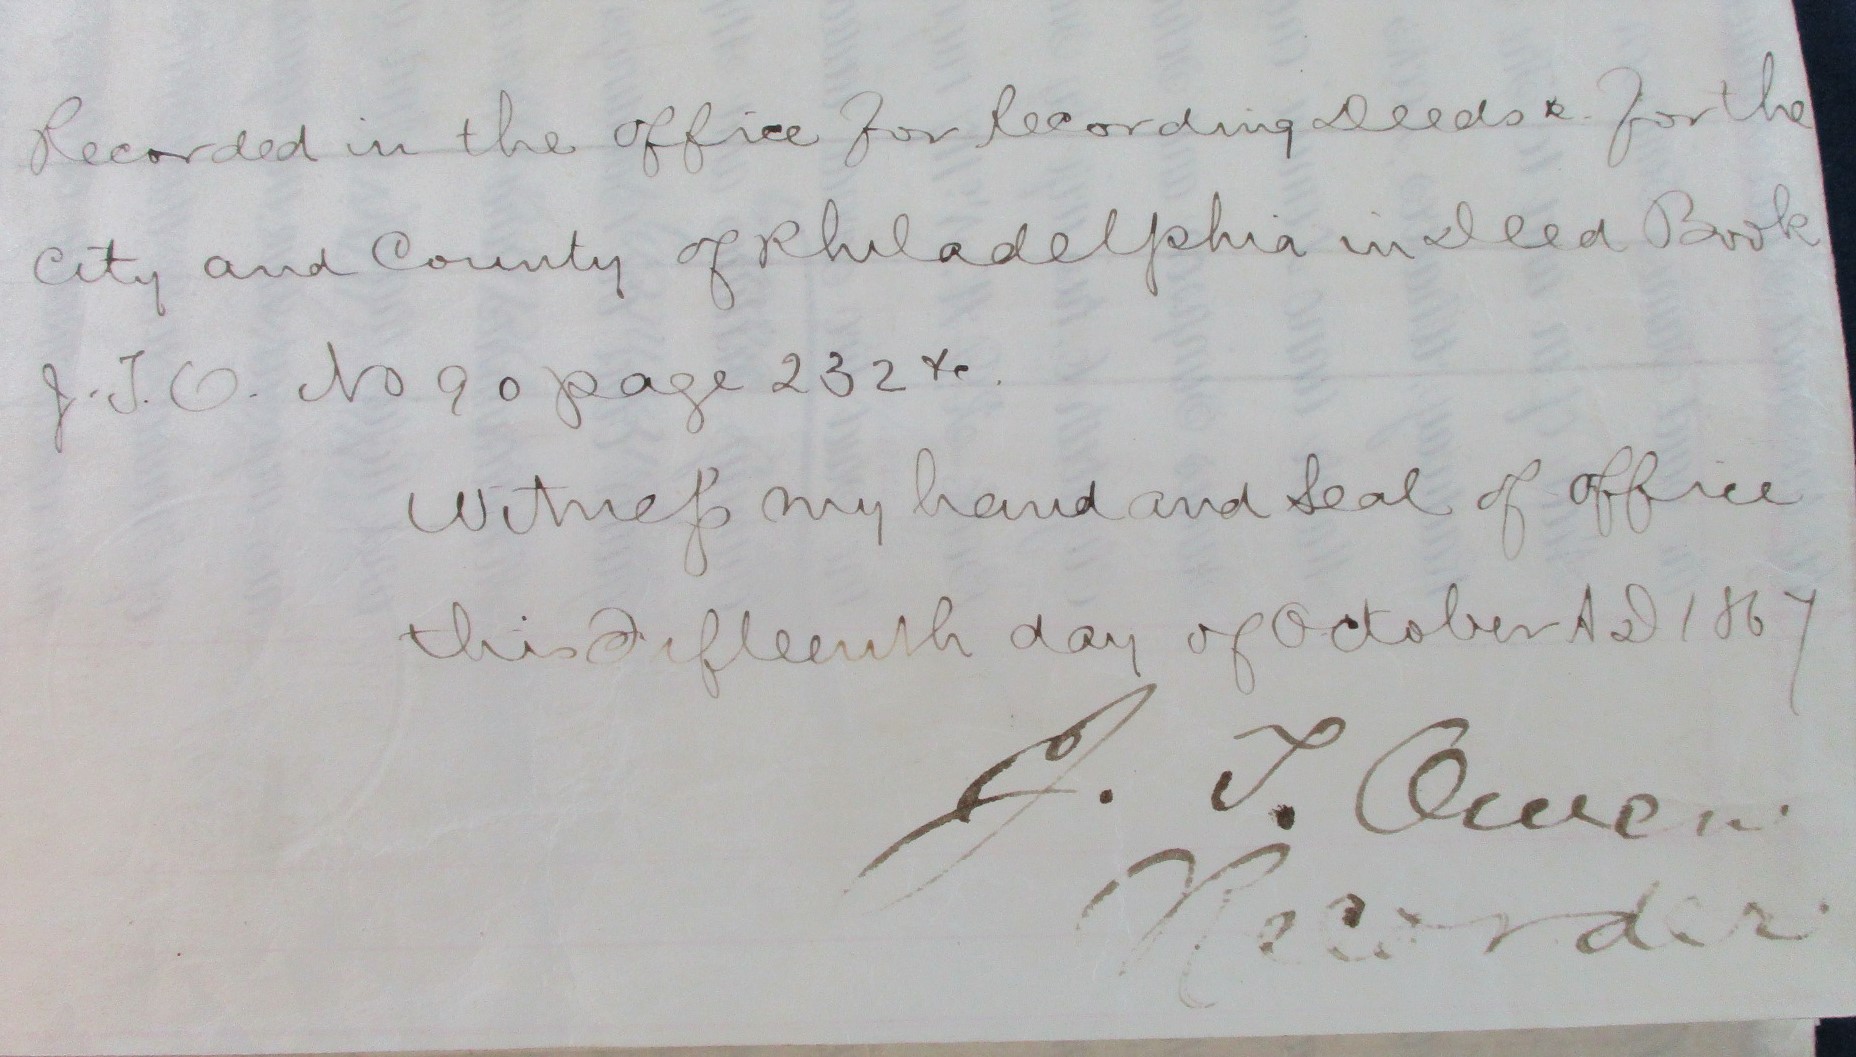 Recorded in the office for Recording Deeds &c. for the
City and County of Philadelphia in Deed Book
J.T.O. No 90 page 232 &c.
Witneſs my hand and Seal of office
this Fifteenth day of October A D 1867
J. T. Owen
Recorder